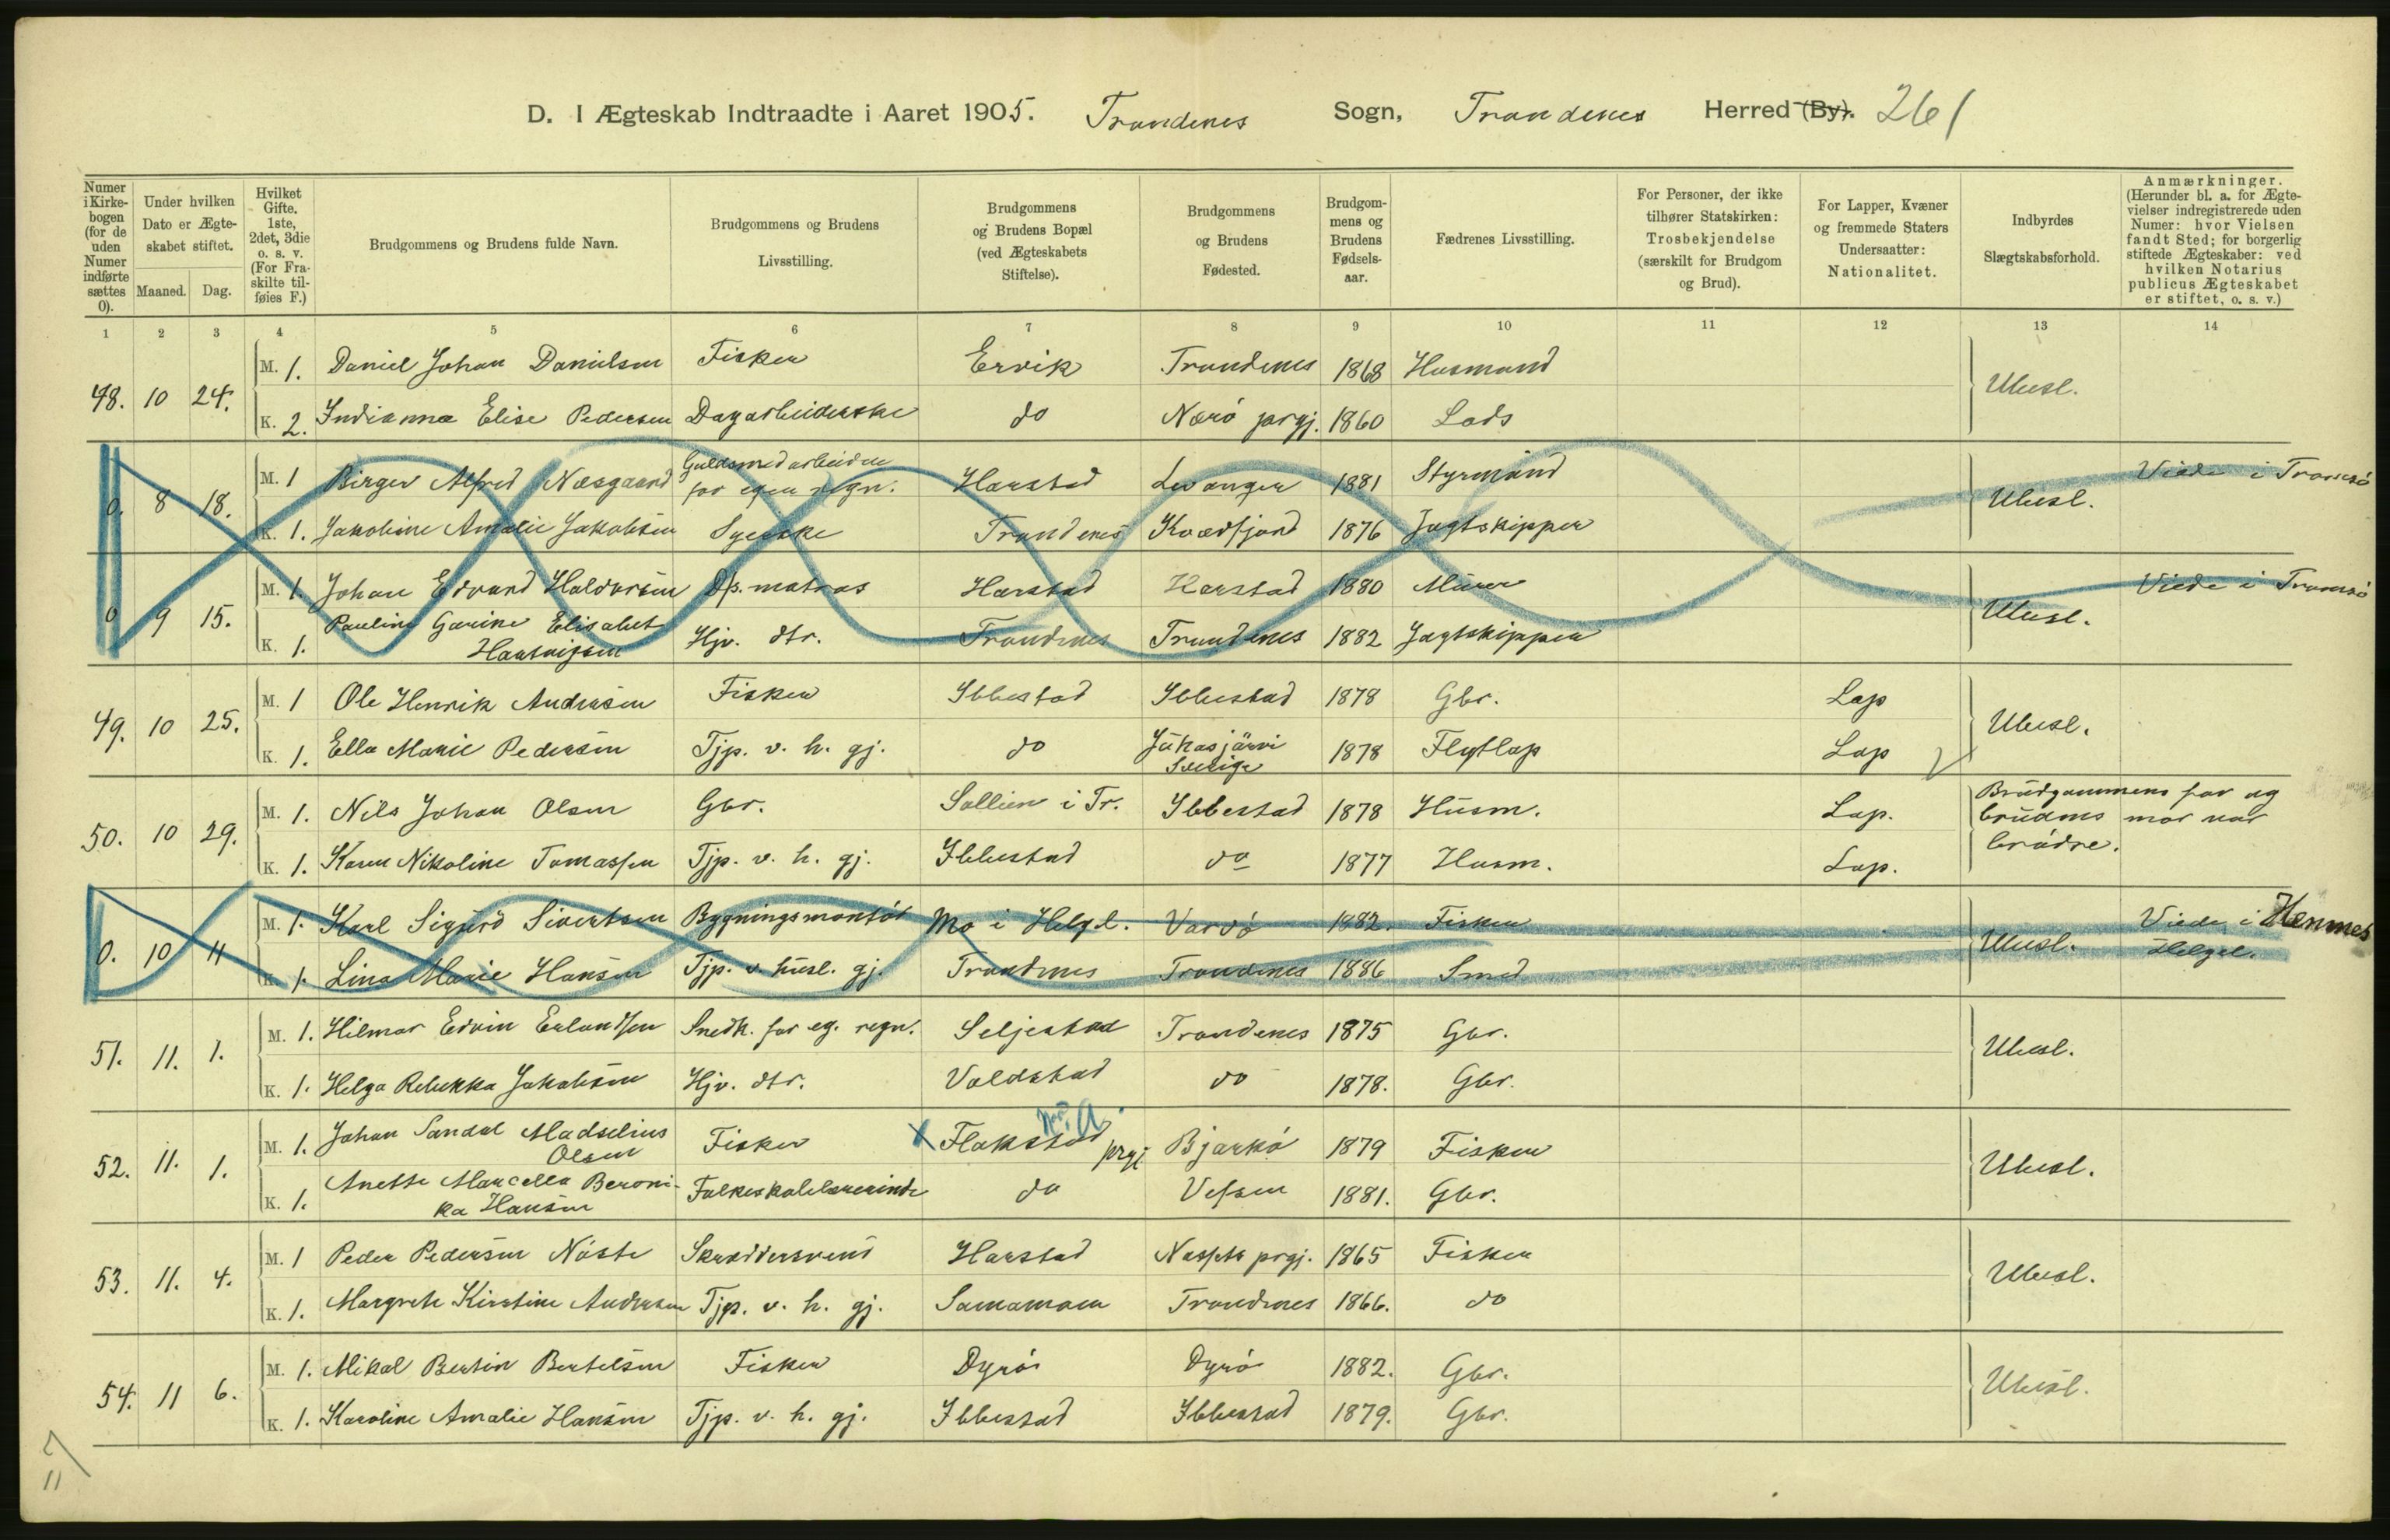 D. I Ægteskab Indtraadte i Aaret 1905. Trondenes Sogn, Trondenes Herred (By). 261
Numer i Kirkebogen (for de uden Numer indførte sættes 0). Under hvilken Dato er Ægteskabet stiftet. Maaned. Dag. Hvilket Gifte. 1ste, 2det, 3die o. s. v. (For Fraskilte tilføies F.) Brudgommens og Brudens fulde Navn. Brudgommens og Brudens Livsstilling. Brudgommens og Brudens Bopæl (ved Ægteskabets Stiftelse). Brudgommens og Brudens Fødested. Brudgommens og Brudens Fødselsaar. Fædrenes Livsstilling. For Personer, der ikke tilhører Statskirken: Trosbekjendelse (særskilt for Brudgom og Brud). For Lapper, Kvæner og fremmede Staters Undersaatter: Nationalitet. Indbyrdes Slægtskabsforhold. Anmærkninger. (Herunder bl. a. for Ægtevielser indregistrerede uden Numer: hvor Vielsen fandt Sted; for borgerlig stiftede Ægteskaber: ved hvilken Notarius publicus Ægteskabet er stiftet, o. s. v.)
1 2 3 4 5 6 7 8 9 10 11 12 13 14
48. 10 24. M. 1. Daniel Johan Danielsen Fisker Ervik Trondenes 1868 Husmand Ubesl.
K. 2. Indianna Elise Pedersen Dagarbeiderske do Nærö prgj. 1860 Lods
0. 8 18. M. 1 Birger Alfred Næsgaard Guldsmedarbeider for egen regn. Harstad Levanger 1881 Styrmand Ubesl. Viede i Tromsö
K. 1. Jakobine Amalie Jakobsen Syerske Trondenes Kvædfjord 1876 Jagtskipper
0 9 15. M. 1. Johan Edvard Haldorsen Dp. matros Harstad Harstad 1880 Murer Ubesl. Viede i Tromsö
K. 1. Pauline Garine Elisabet Hartvigsen Hjv. dtr. Trondenes Trondenes 1882 Jagtskipper
49. 10 25. M. 1 Ole Henrik Andersen Fisker Ibbestad Ibbestad 1878 Gbr. Lap Ubesl.
K. 1. Ella Marie Pedersen Tjp. v. h. gj. do Jukasjärvi Sverige 1878 Flytlap Lap
50. 10 29. M. 1. Nils Johan Olsen Gbr. Sollien i Tr. Ibbestad 1878 Husm. Lap. Brudgommens far og brudens mor var brödre.
K. 1. Karen Nikoline Tomassen Tjp. v. h. gj. Ibbestad do 1877 Husm. Lap.
0. 10 11 M. 1. Karl Sigurd Sivertsen Bygningsmontör Mo i Helgel. Vardö 1882. Fisker Ubesl. Viede i Hemnes Helgel.
K. 1. Lina Marie Hansen Tjp. v. husl. gj. Trondenes Trondenes 1886 Smed
51. 11. 1. M. 1. Hilmar Edvin Erlandsen Snedk. for eg. regn. Seljestad Trondenes 1875 Gbr. Ubesl.
K. 1. Helga Rebekka Jakobsen Hjv. dtr. Voldstad do 1878. Gbr.
52. 11. 1. M. 1. Johan Sandal Madselius Olsen Fisker x Flakstad prgj Bjarkö 1879 Fisker Ubesl.
K. 1. Anette Marcella Beronika Hansen Folkeskolelærerinde do Vefsen 1881. Gbr.
53. 11. 4. M. 1 Peder Pedersen Nöste Skræddersvend Harstad Næssets prgj. 1865 Fisker Ubesl.
K. 1. Margrete Kirstine Andersen Tjp. v. h. gj. Samamoen Trondenes 1866. do
54. 11 6. M. 1. Mikal Bertin Bertelsen Fisker Dyrö Dyrö 1882. Gbr. Ubesl.
K. 1. Karoline Amalie Hansen Tjp. v. h. gj. Ibbestad Ibbestad 1879. Gbr.